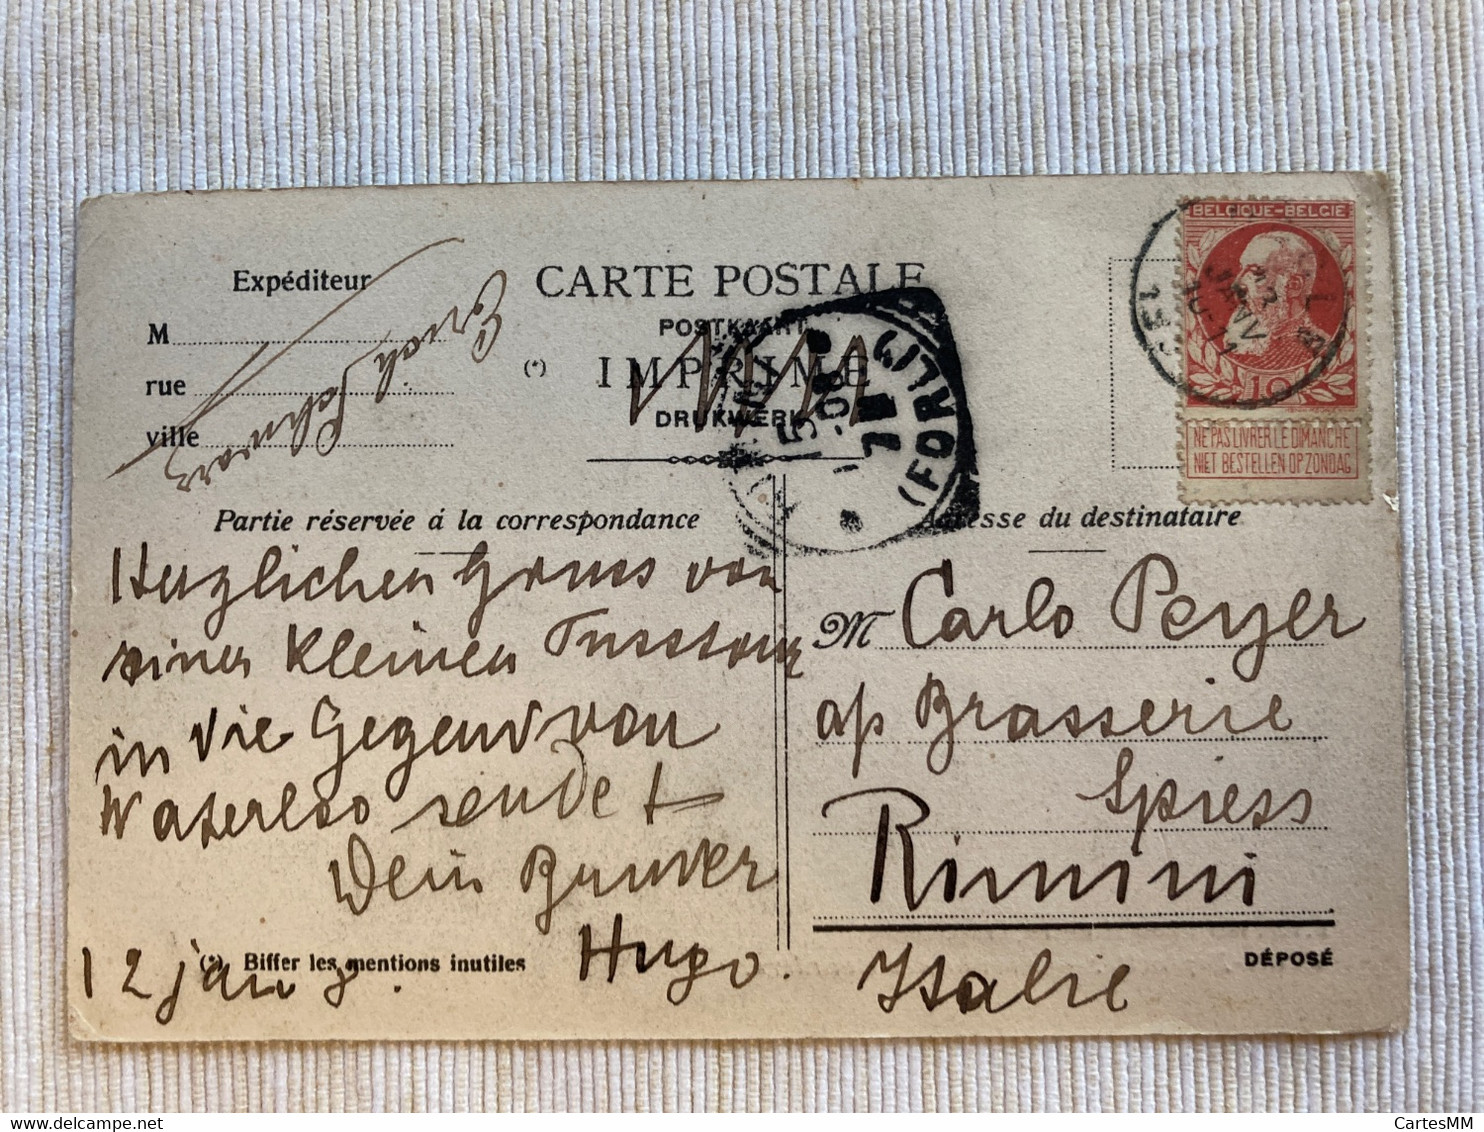 Expéditeur
M
rue
ville
Erich Schwarz
CARTE POSTALE
POSTKAART
(*) IMPRIMÉ
DRUKWERK
BELGIQUE-BELGIE
10
NE PAS LIVRER LE DIMANCHE
NIET BESTELLEN OP ZONDAG
(FORLI)
15
08
Partie réservée á la correspondance
Herzlichen Gruss von
einer kleinen Fusstour
in die Gegend von
Waterloo sendet
Dein Bruder
Hugo.
12 jan 8.
(*) Biffer les mentions inutiles
Adresse du destinataire
M Carlo Peyer
ap Brasserie
Spiess
Rimini
Italie
DÉPOSÉ
CartesMM